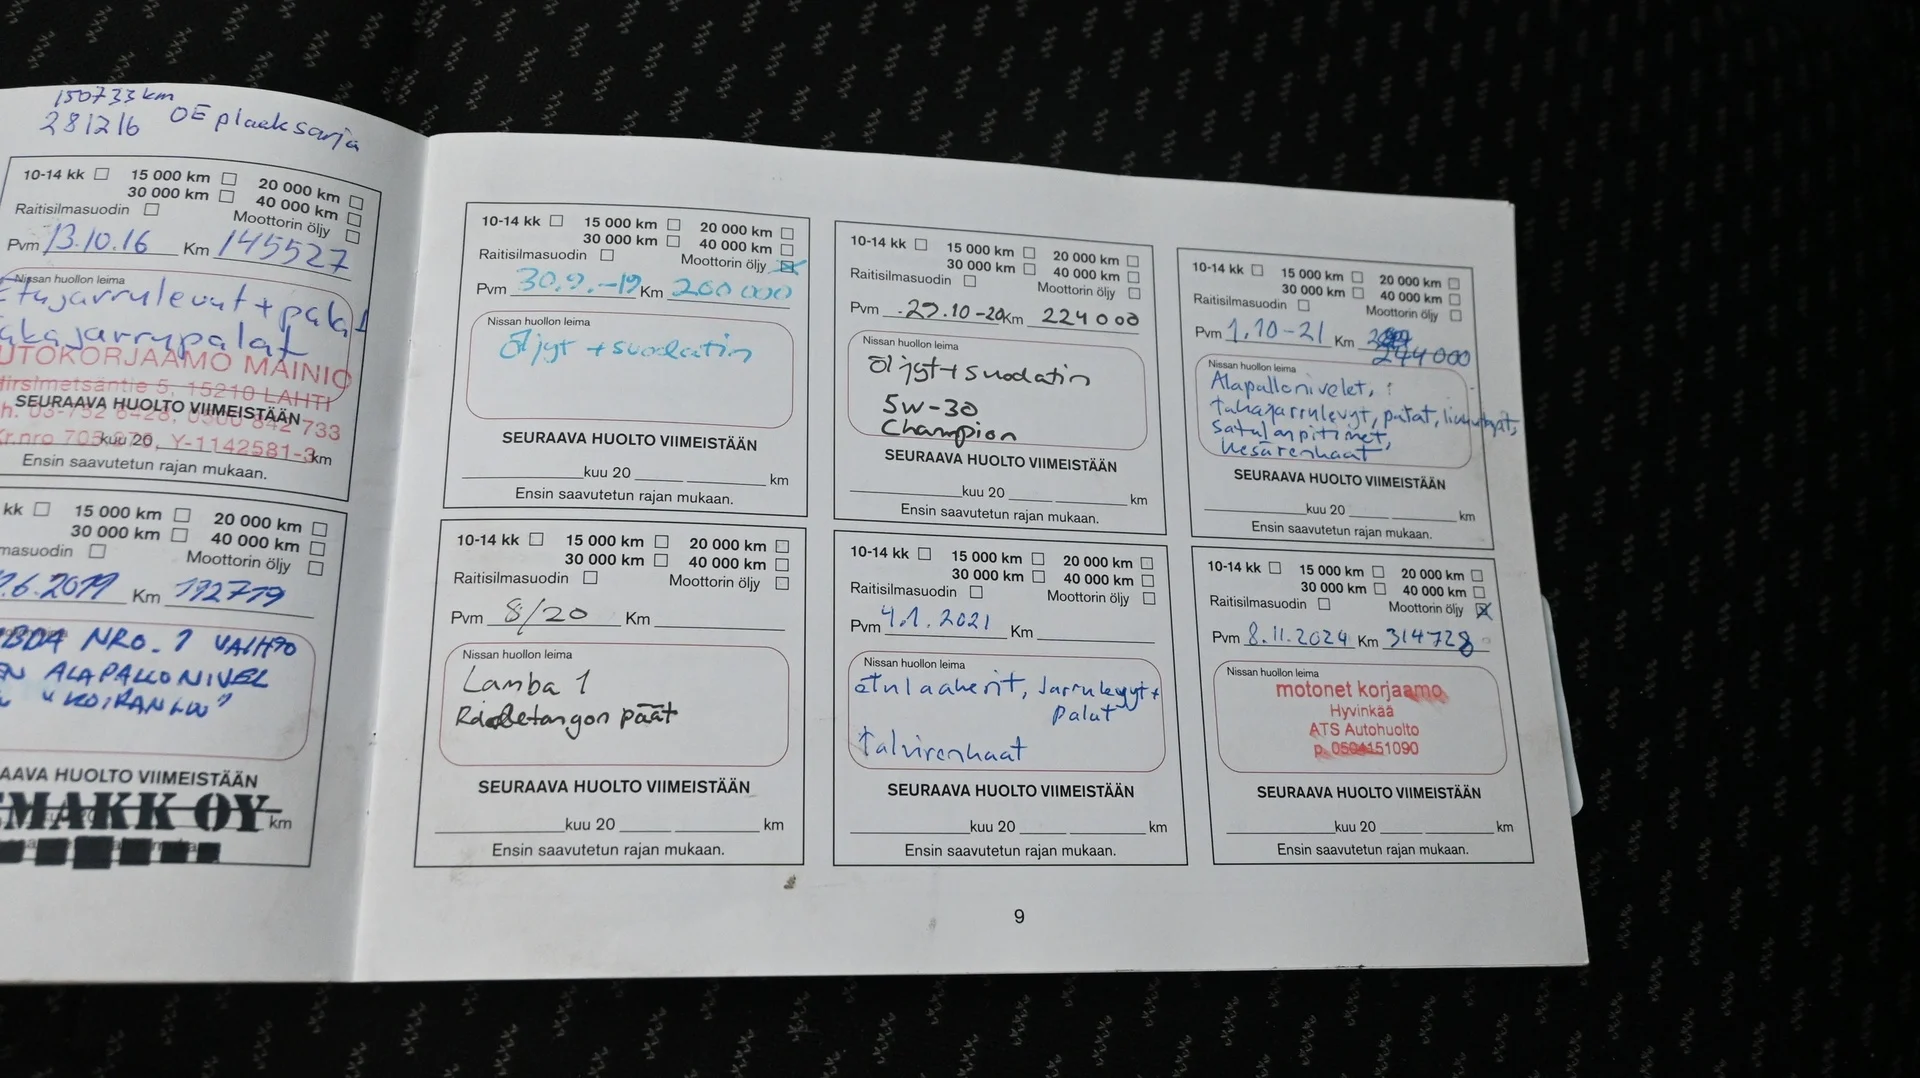 150733 km
281216 OE plaaksarja
10-14 kk 15 000 km 20 000 km
30 000 km 40 000 km
Raitisilmasuodin Moottorin öljy
Pvm 13.10.16 Km 145527
Nissan huollon leima
Etujarrulevyt + palat
takajarrupalat
AUTOKORJAAMO MAINIO
5, 15210 LAHTI
SEURAAVA HUOLTO VIIMEISTÄÄN
03-752 6428, 0500 842 733
kuu 20 Y-1142581-3 km
Ensin saavutetun rajan mukaan.
kk 15 000 km 20 000 km
30 000 km 40 000 km
masuodin Moottorin öljy
.6.2019 Km 192779
BDA NRO. 1 VAIHTO
EN ALAPALLONIVEL
SEURAAVA HUOLTO VIIMEISTÄÄN
EMAKK OY
km
10-14 kk 15 000 km 20 000 km
30 000 km 40 000 km
Raitisilmasuodin Moottorin öljy
Pvm 30.9.-19 Km 200 000
Nissan huollon leima
Öljyt + suodatin
SEURAAVA HUOLTO VIIMEISTÄÄN
kuu 20 km
Ensin saavutetun rajan mukaan.
10-14 kk 15 000 km 20 000 km
30 000 km 40 000 km
Raitisilmasuodin Moottorin öljy
Pvm 8/20 Km
Nissan huollon leima
Lamba 1
Raidetangon päät
SEURAAVA HUOLTO VIIMEISTÄÄN
kuu 20 km
Ensin saavutetun rajan mukaan.
10-14 kk 15 000 km 20 000 km
30 000 km 40 000 km
Raitisilmasuodin Moottorin öljy
Pvm .10-20 Km 224 000
Nissan huollon leima
Öljyt + suodatin
5W-30
Champion
SEURAAVA HUOLTO VIIMEISTÄÄN
kuu 20 km
Ensin saavutetun rajan mukaan.
10-14 kk 15 000 km 20 000 km
30 000 km 40 000 km
Raitisilmasuodin Moottorin öljy
Pvm 4.1.2021 Km
Nissan huollon leima
etulaakerit, Jarrulevyt +
Palat
talvirenkaat
SEURAAVA HUOLTO VIIMEISTÄÄN
kuu 20 km
Ensin saavutetun rajan mukaan.
10-14 kk 15 000 km 20 000 km
30 000 km 40 000 km
Raitisilmasuodin Moottorin öljy
Pvm 1.10-21 Km
244 000
Nissan huollon leima
Alapallonivelet,
takajarrulevyt, palat, liukutapit,
satulanpitimet,
kesärenkaat
SEURAAVA HUOLTO VIIMEISTÄÄN
kuu 20 km
Ensin saavutetun rajan mukaan.
10-14 kk 15 000 km 20 000 km
30 000 km 40 000 km
Raitisilmasuodin Moottorin öljy
Pvm 8.11.2024 Km 314728
Nissan huollon leima
motonet korjaamo
Hyvinkää
ATS Autohuolto
p. 0504151090
SEURAAVA HUOLTO VIIMEISTÄÄN
kuu 20 km
Ensin saavutetun rajan mukaan.
9